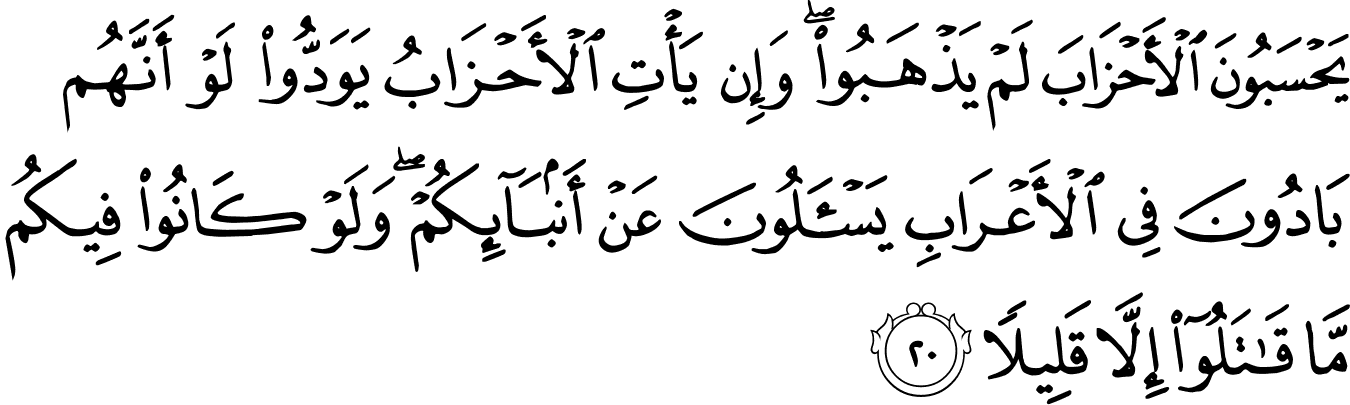 يَحْسَبُونَ ٱلْأَحْزَابَ لَمْ يَذْهَبُوا۟ ۖ وَإِن يَأْتِ ٱلْأَحْزَابُ يَوَدُّوا۟ لَوْ أَنَّهُم
بَادُونَ فِى ٱلْأَعْرَابِ يَسْـَٔلُونَ عَنْ أَنۢبَآئِكُمْ ۖ وَلَوْ كَانُوا۟ فِيكُم
مَّا قَـٰتَلُوٓا۟ إِلَّا قَلِيلًا ٢٠